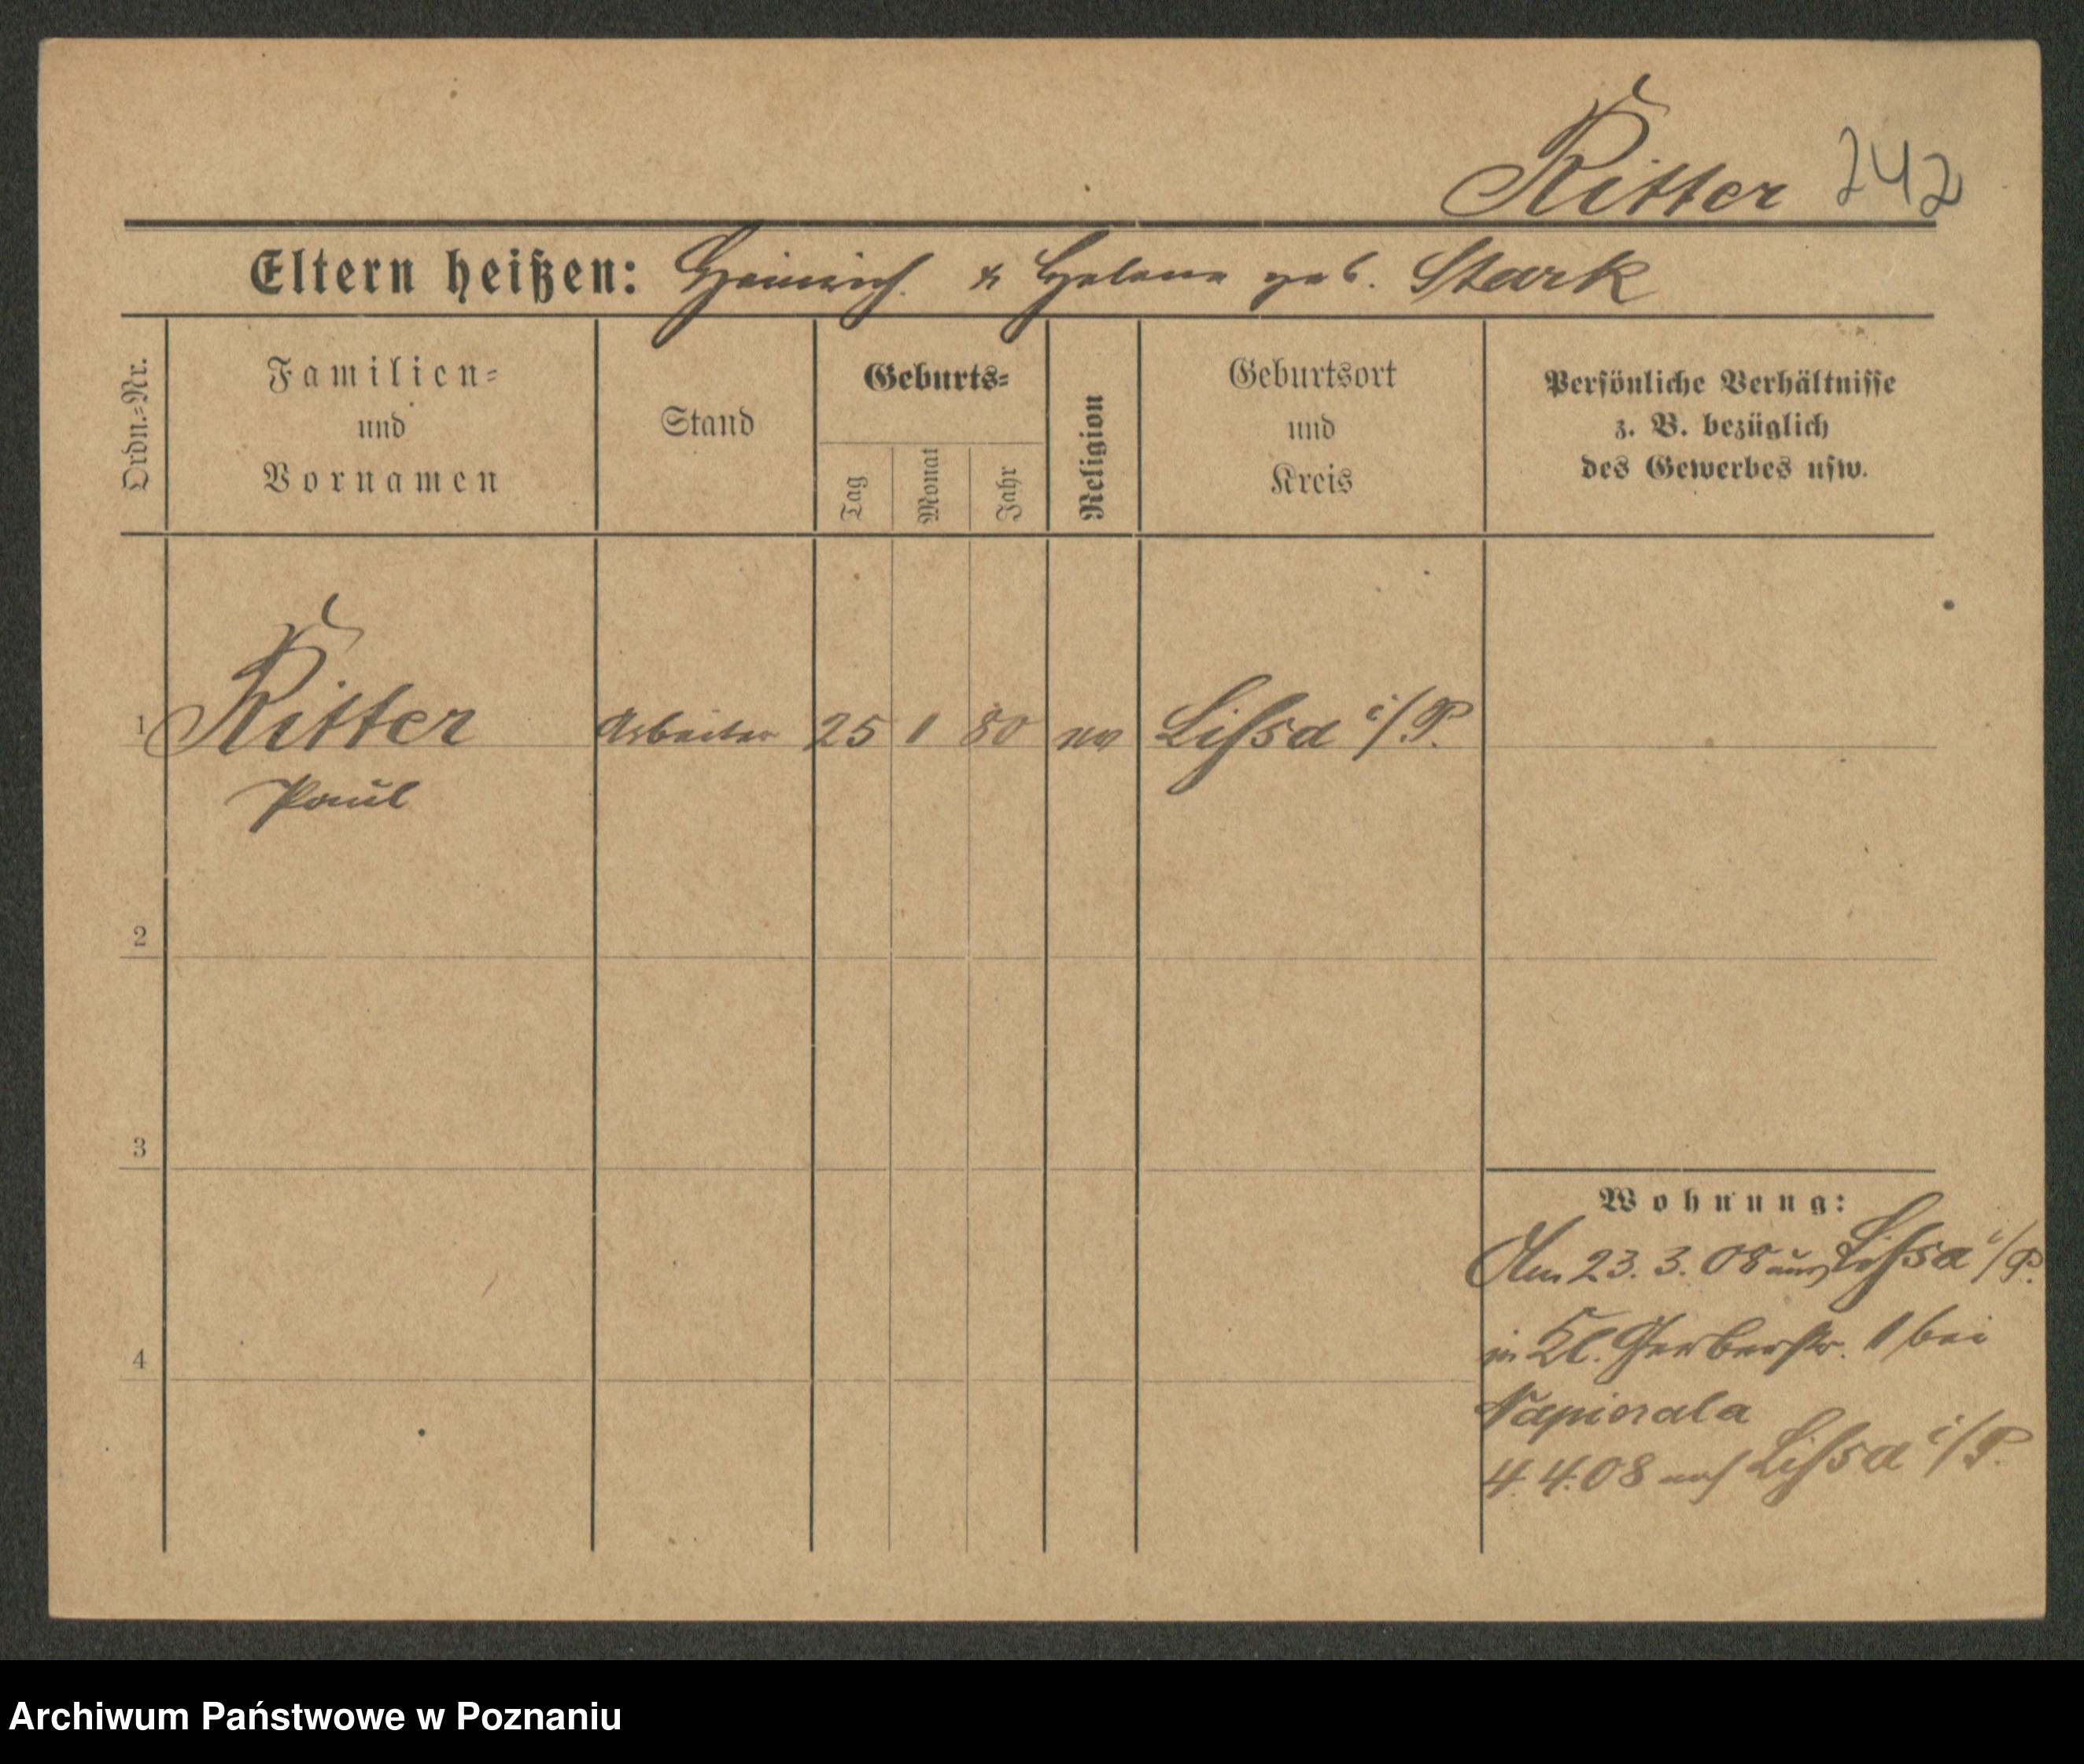 Ritter 242
Eltern heißen: Heinrich & Helene geb. Stark
Ordn.-Nr.
Familien-
und
Vornamen
Stand
Geburts-
Tag
Monat
Jahr
Religion
Geburtsort
und
Kreis
Persönliche Verhältnisse
z. B. bezüglich
des Gewerbes usw.
1 Ritter Arbeiter 25 1 80 ev Lissa i/P.
Paul
2
3
4
Wohnung:
Am 23. 3. 08 aus Lissa i/P.
in Kl. Gerberstr. 1 bei
Napierala
4.4.08 nach Lissa i/P.
Archiwum Państwowe w Poznaniu